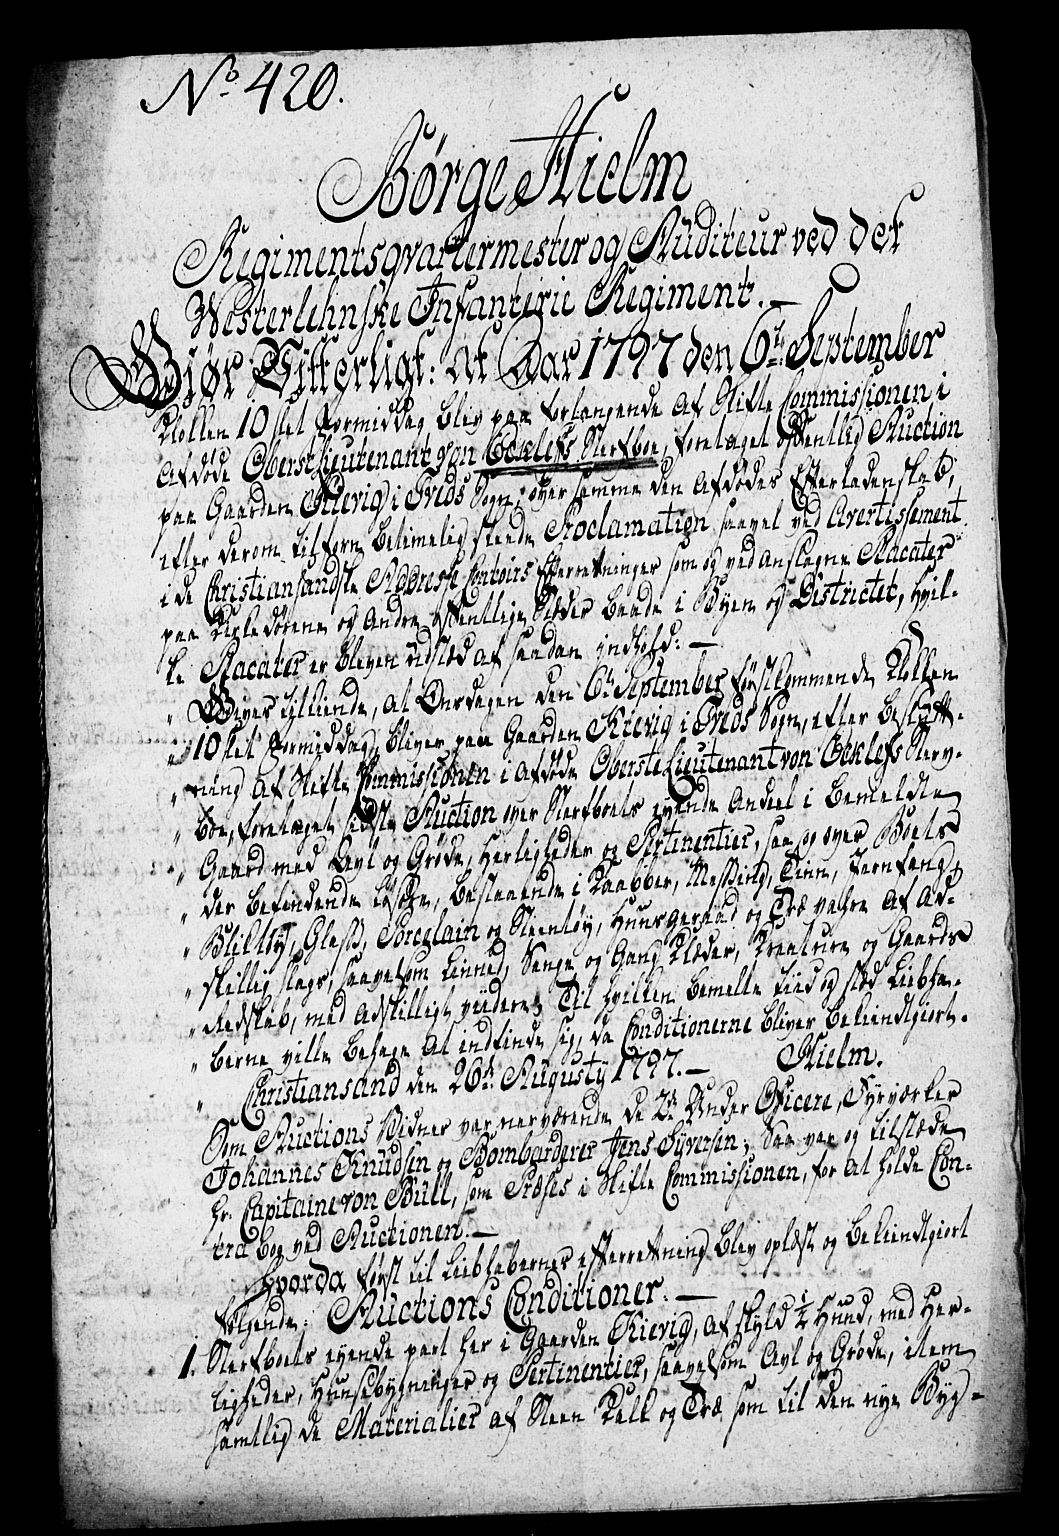 No 420.
Børge Hielm
Regimentsqvartermester og Auditeur ved det
Westerlehnske Infanterie Regiment. —
Giør Vitterligt: At Aar 1797 den 6te September
Klokken 10 slet Formiddag blev paa forlangende af Skifte Commissionen i
afdøde Oberstlieutenant von Ecklefs Sterfboe, foretaget offentlig Auction
paa Gaarden Kievig i Treds Sogn, over samme den afdødes Efterladenskab,
efter derom tilforn betimelig skeede Proclamation saavel ved Avertissement
i de Christiansandske Addresse Contoirs Efterretninger som og ved anslagne Placater
paa Kirkedørene og andre offentlige Stæder baade i Byen og Districtet, hvil-
ke Placater er bleven udstæd af saadan indhold: —
" Gives tilkiende, at Onsdagen den 6te September førstkommende Klokken
" 10 slet Formiddag, bliver paa Gaarden Kievig i Treds Sogn, efter beslut-
" ning af Skifte Commissionen i afdøde Oberste Lieutenant von Ecklefs Sterv-
" boe, foretaget sidste Auction over Sterfboets eyende Andeel i bemeldte
" Gaard med Avl og Grøde, Herligheder og Pertinentier, saa og over Boets
" der befindende Løsøre, bestaaende i Kaabber, Messing, Tinn, Jernfang,
" Bliktøy, Glass, Porcelain og Steentøy, Huusgeraad og Træ vahre af ad-
" skillig slags, saavelsom Linned, Senge og Gang Klæder, Kreature og Gaards
" Redskab, med adskilligt viidere; Til hvilken bemelte tiid og stæd Liebha-
" berne ville behage at indfinde sig, da Conditionerne bliver bekiendtgiort.
" Christiansand den 26de Augusty 1797. — Hielm.
Som Auctions Vidner var nærværende de 2de Under Officere, Fyrværker
Johannes Knudsen og Bombarderer Jens Syversen; Saa var og tilstæde
Hr. Capitaine von Bull, som Præses i Skifte Commissionen, for at holde Con-
tra bog ved Auctionen. —
Hvorda først til Liebhabernes efterretning blev oplæst og bekiendtgiort
følgende: Auctions Conditioner. —
1. Sterfboets eyende part her i Gaarden Kievig, af skyld ½ Hund, med Her-
ligheder, Huusebygninger og Pertinentier, saavelsom Avl og Grøde, item
samtlig de Materialier af Steen Kalk og Træ som til den nye Byg-